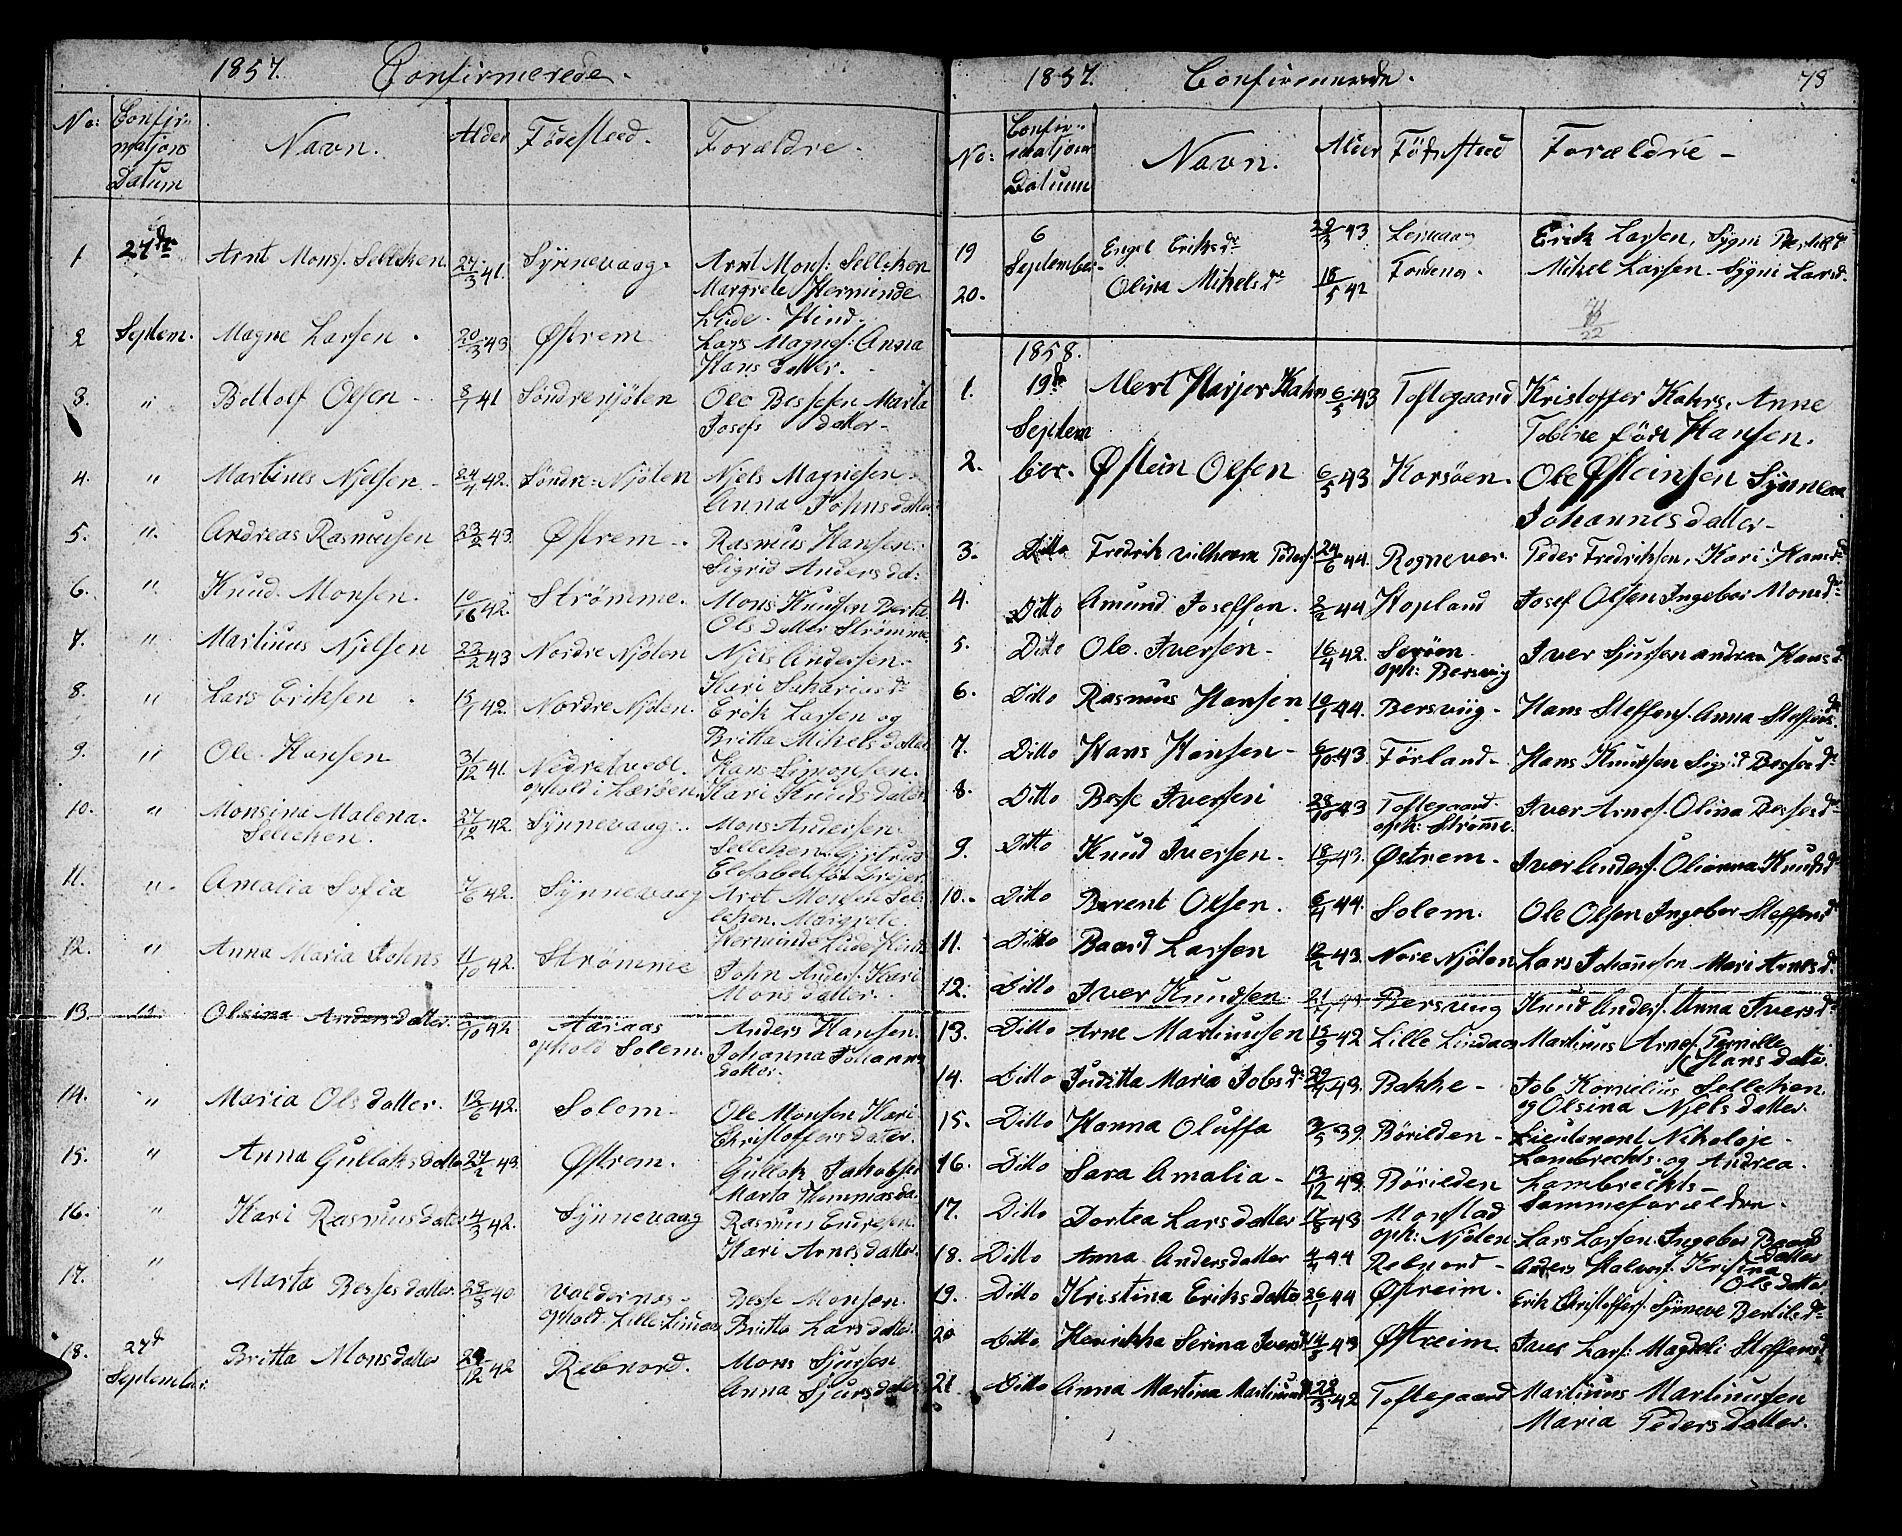 1857. Confirmerede.
No: Confirmatjons Datum Navn. Alder Födesteed. Forældre.
1 27de Arnt Mons: Selleken 27/3 41. Synnevaag. Arnt Mons: Selleken
Margrete Herminde
Lude. Hind.
2 Septem. Magne Larsen. 20/3 43 Østrem Lars Magnes: Anna
Hans datter.
3. " Bottolf Olsen 8/7 41 Söndre njöten Ole Bessesen Marta
Josefs datter
4. " Martines Njelsen 24/4 42. Söndre: Njöten Njels Magnesen
Anna Johns datter
5. " Andreas Rasmusen 23/2 43. Østrem Rasmus Hansen.
Sigrid Anders dat:
6. " Knud Monsen. 10/16 42. Strömme. Mons Knudsen Berta
Ols datter Strömme
7. " Martinus Njelsen 22/2 43 Nordre Njöten Njels Andersen.
Kari Sakarias dr
8. " Lars Eriksen 15/1 42. Nordre Njöten. Erik Larsen og
Britta Mikels datter
9. " Ole Hansen 31/12 41 Nedretvedt. Hans Simonsen.
ophold i Lersöen. Kari Knuds datter
10. " Monsina Malena. 27/12 42. Synnevaag. Mons Andersen
Selleken. Selleken Gjertrud
Elisabet föt Dreier
11. " Amalia Sofia 7/6 42. Synnevaag Arnt Monsen Sel-
leken. Margrete
Herminde Lude Hind
12. " Anna Maria Johns 11/10 42. Strömme John Anders: Kari
Mons datter.
13. " Olsina Anders datter 2/10 42 Aaraas Anders Hansen.
ophold Solem. Johanna Johanns
datter.
14. " Maria Ols datter. 12/6 42. Solem Ole Monsen Kari
Christoffers datter.
15. " Anna Gulleks datter 27/2 43. Østrem. Gullek Jakobsen
Marta Tommas da
16. " Kari Rasmus datter 4/3 42. Synnevaag Rasmus Endresen.
Kari Arnes datter.
17. " Marta Besses datter 23/3 40 Valdernes Besse Monsen.
ophold: Lille Lindaas Britta Lars datter.
18. 27d September Britta Mons datter 24/12 42 Rebnord. Mons Sjursen
Anna Sjurs datter
1857. Confirmerede. 78
No: Confirmatjons Datum Navn. Alder Födesteed Forældre
19 6 September Engel Eriks dr 29/3 43 Lenevaag Erik Larsen, Sygni Bertels dr
20. Olina Mikels dr 18/5 42 Fondenes. Mikel Larsen Sygni Lars d:
22
1858.
1. 19de Alert Harjer Kahrs 6/5 43 Toftegaard Kristoffer Kahrs, Anne
Septem Tobine föds Hansen.
2. ber. Østein Olsen 6/5 43 Korsöen. Ole Østeinsen Synneva
Johannes datter
3. Ditto Fredrik vilheem Peders: 24/6 44. Rognever. Peder Fredriksen, Kari: Hans dr
4. Ditto Amund Josefsen. 2/2 44 Hopland Josef Olsen Ingebor Mons dr
5. Ditto Ole Iversen 16/4 42. Seröen Iver Sjursen andrea Hans d
oph: Bersviig
6. Ditto Rasmus Hansen 10/1 44. Bersviig Hans Steffens: Anna Steffens dr
7. Ditto Hans Hansen 6/10 43 Förland Hans Knudsen Sigrid Besses dr
8. Ditto Besse Iversen 28/10 43 Toftegaard Iver Arnes: Olina Besses dr
oph: Strömme.
9. Ditto Knud Iversen. 18/9 43. Østrem Iver Anders: Olianna Knuds dr
10. Ditto Berent Olsen. 6/4 44. Solem. Ole Olsen Ingebor Steffens dr
11. Ditto Baard Larsen 12/2 43. Nore Njöten Lars Johannesen Mari Arnes d:
12. Ditto Iver Knudsen 21/1 44 Bersviig Knud Anders: Anna Ivers dr
13. Ditto Arne Martinusen 15/5 42 Lille Lindaas Martinus Arnes: Pernille
Hans datter.
14. Ditto Juditta Maria Jobs dr 29/7 43. Bakke Job Kornelius Selleken
og Olsina Njels datter.
15. Ditto Hanna Oluffa 3/5 39. Börilden Lieutenant Nikolaje
Lambrechts. og Andrea.
16. Ditto Sara Amalia 13/12 43. Börilden Lambrechts
Sammeforældre.
17. Ditto Dortea Lars datter 17/8 43 Monstad Lars Larsen Ingebor Baard
oph: Njöten datter
18. Ditto Anna Andersdatter 4/4 44 Rebnord Anders Halvors: Kristina
Ols datter.
19. Ditto Kristina Eriks datter 26/1 44 Østreim. Erik Christoffers: Synneve Bertils dr
20 Ditto Henrikka Serina Ivers d 14/5 43 Østreim Iver Lars: Magdeli Steffens d
21 Ditto Anna Martina Martinus 28/3 42 Toftegaard Martinus Martinusen
Maria Peders datter.